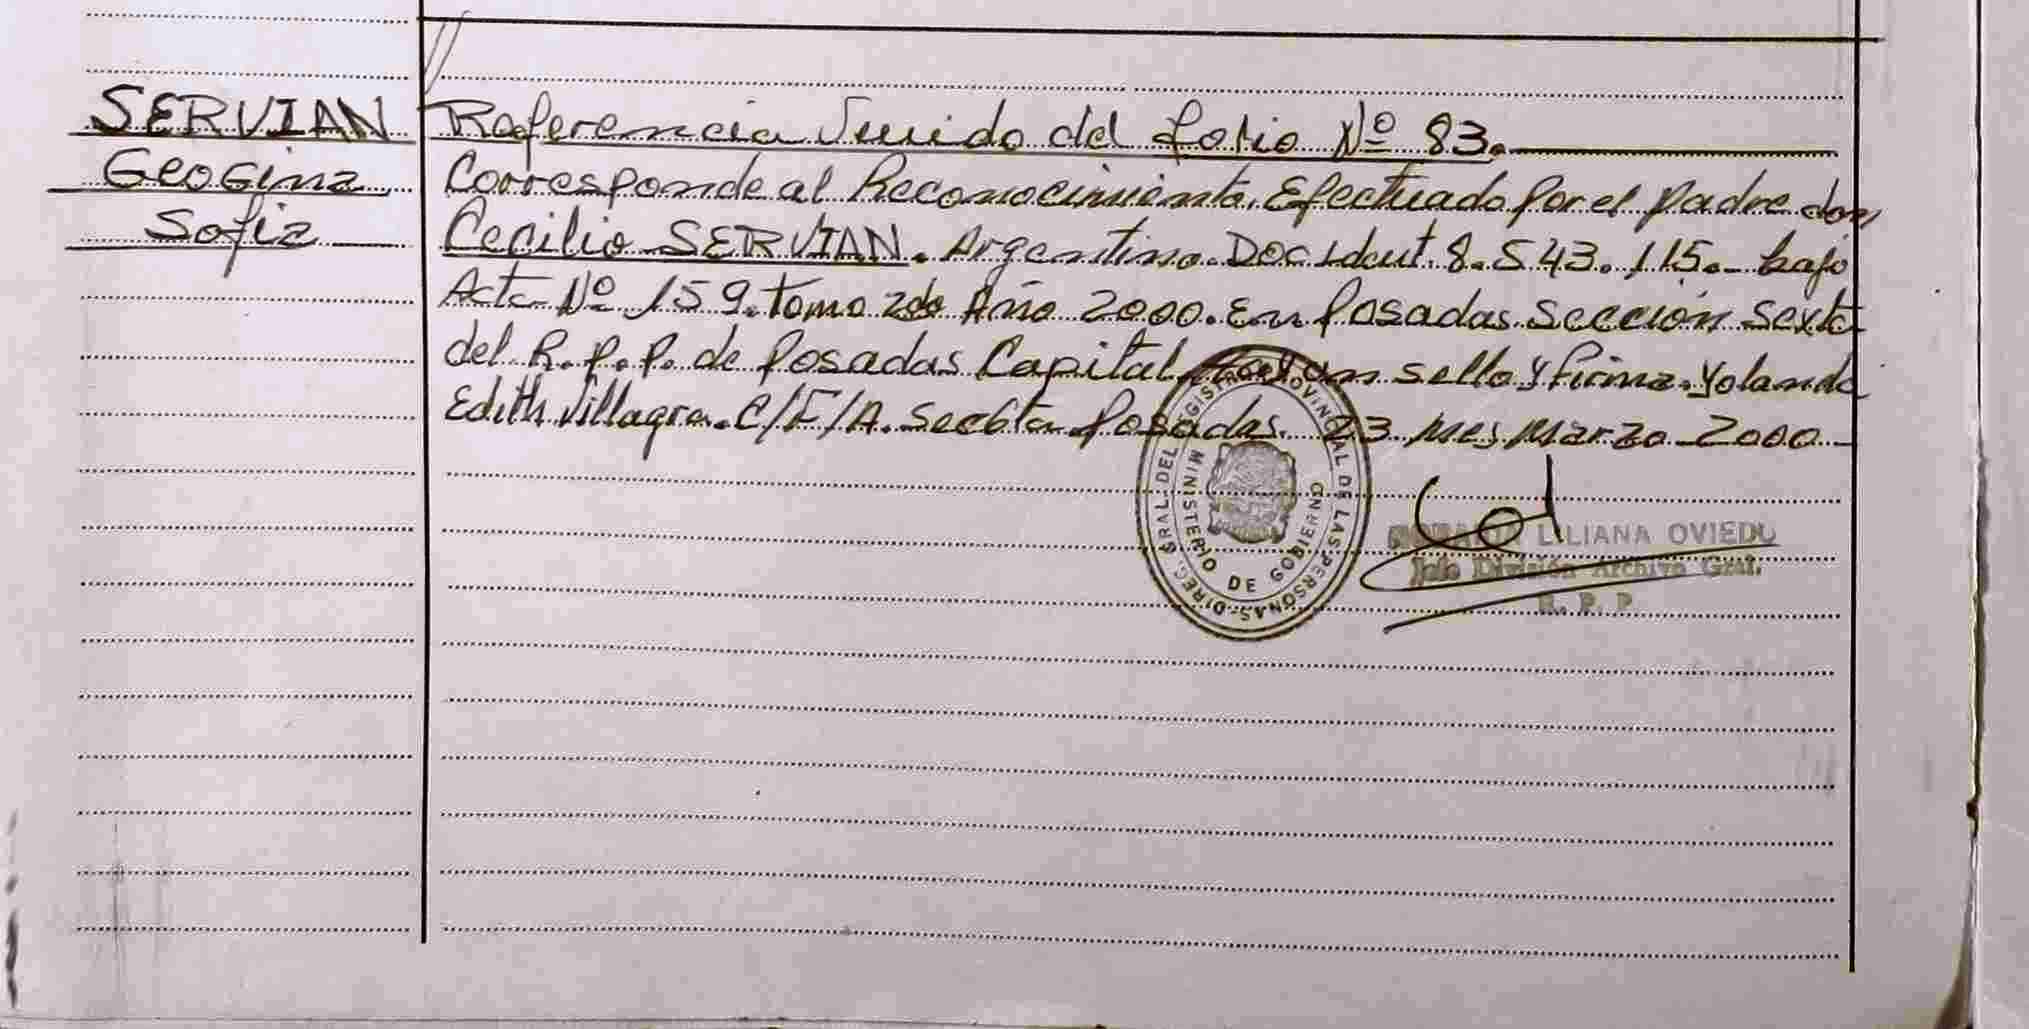 SERVIAN
Geogina
Sofia
Referencia Venido del folio Nº 83.
Corresponde al Reconocimiento. Efectuado por el padre don
Cecilio SERVIAN. Argentino. Doc Ident. 8.543.115.- bajo
Acta Nº 159. tomo 2do Año 2000. En Posadas Sección Sexta
del R.P.P. de Posadas Capital un sello y firma. Yolanda
Edith Villagra. C/F/A. Sec 6ta Posadas. 23 mes Marzo 2000
DIREC. GRAL. DEL REGISTRO PROVINCIAL DE LAS PERSONAS
MINISTERIO DE GOBIERNO
LILIANA OVIEDO
Jefe División Archivo Gral.
R. P. P